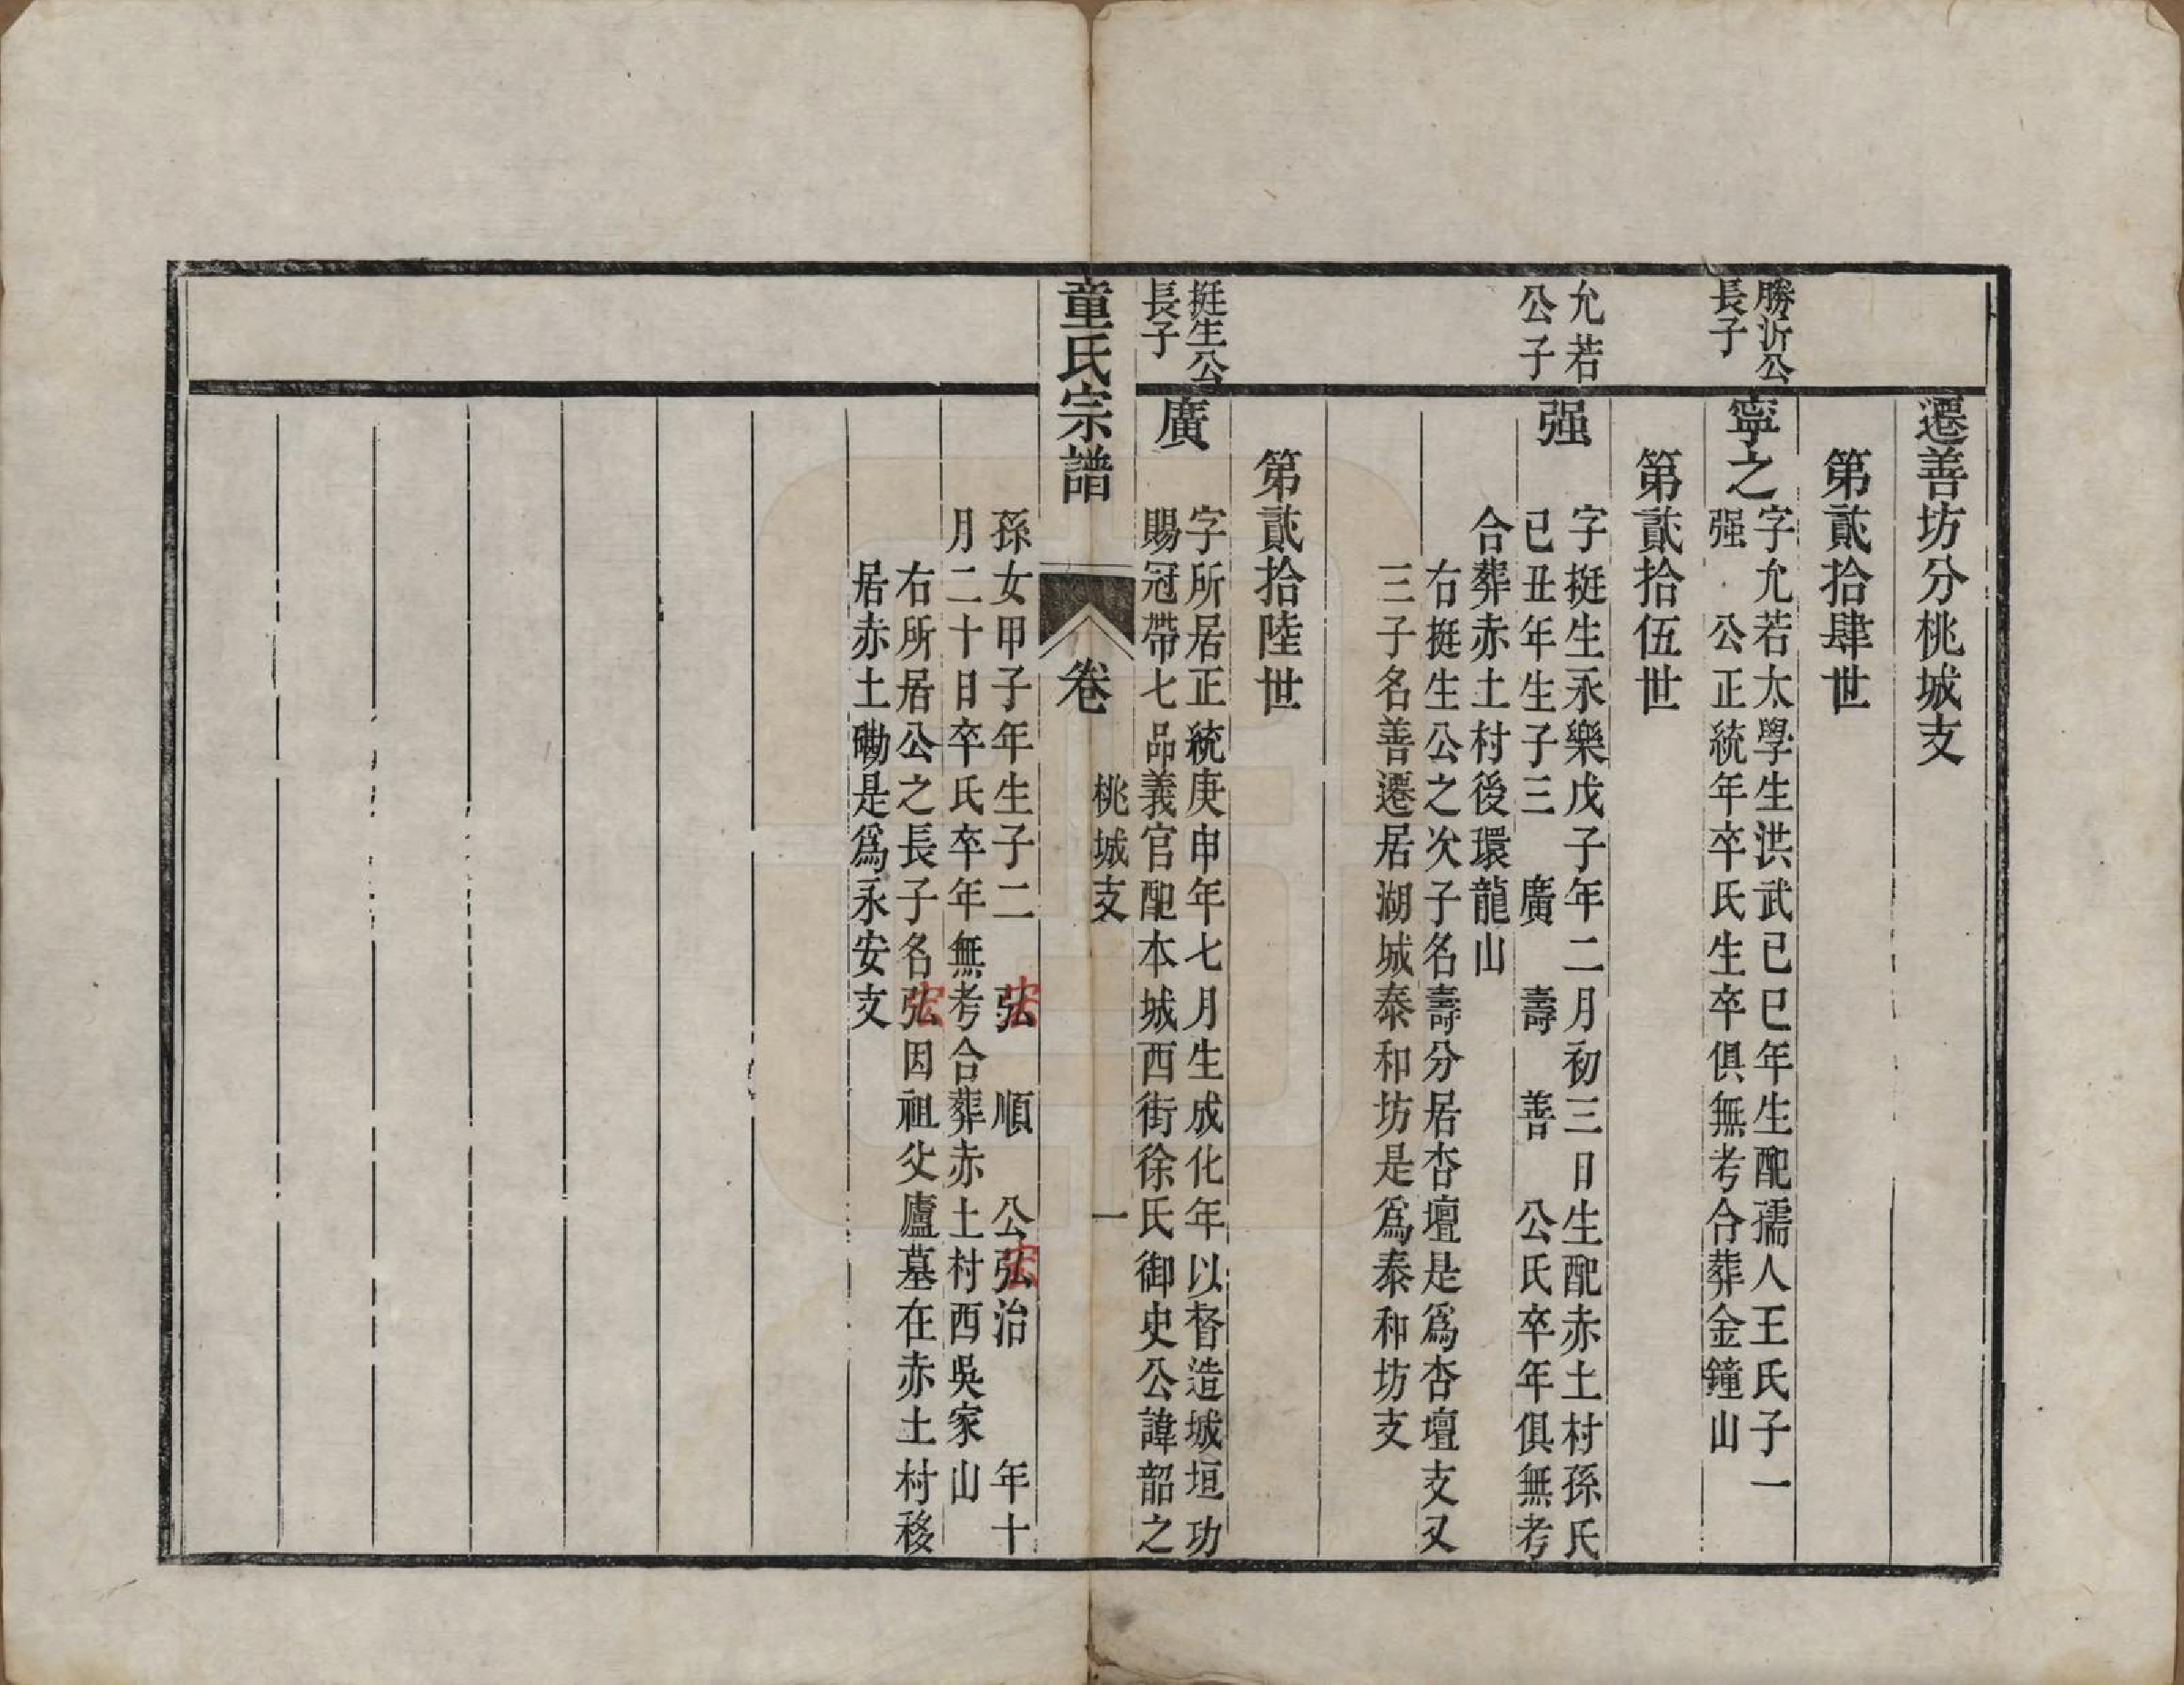 遷善坊分桃城支
第貳拾肆世
勝沂公
長子
寧之
字允若太學生洪武己巳年生配孺人王氏子一
强 公正統年卒氏生卒俱無考合葬金鐘山
第貳拾伍世
允若
公子
强
字挺生永樂戊子年二月初三日生配赤土村孫氏
己丑年生子三 廣 壽 善 公氏卒年俱無考
合葬赤土村後環龍山
右挺生公之次子名壽分居杏壇是爲杏壇支又
三子名善遷居湖城泰和坊是爲泰和坊支
第貳拾陸世
挺生公
長子
廣
字所居正統庚申年七月生成化年以督造城垣功
賜冠帶七品義官配本城西街徐氏御史公諱韶之
童氏宗譜
卷
桃城支
一
孫女甲子年生子二 弘 順 公弘治 年十
宏
宏
月二十日卒氏卒年無考合葬赤土村西吳家山
右所居公之長子名弘因祖父廬墓在赤土村移
宏
居赤土磡是爲永安支